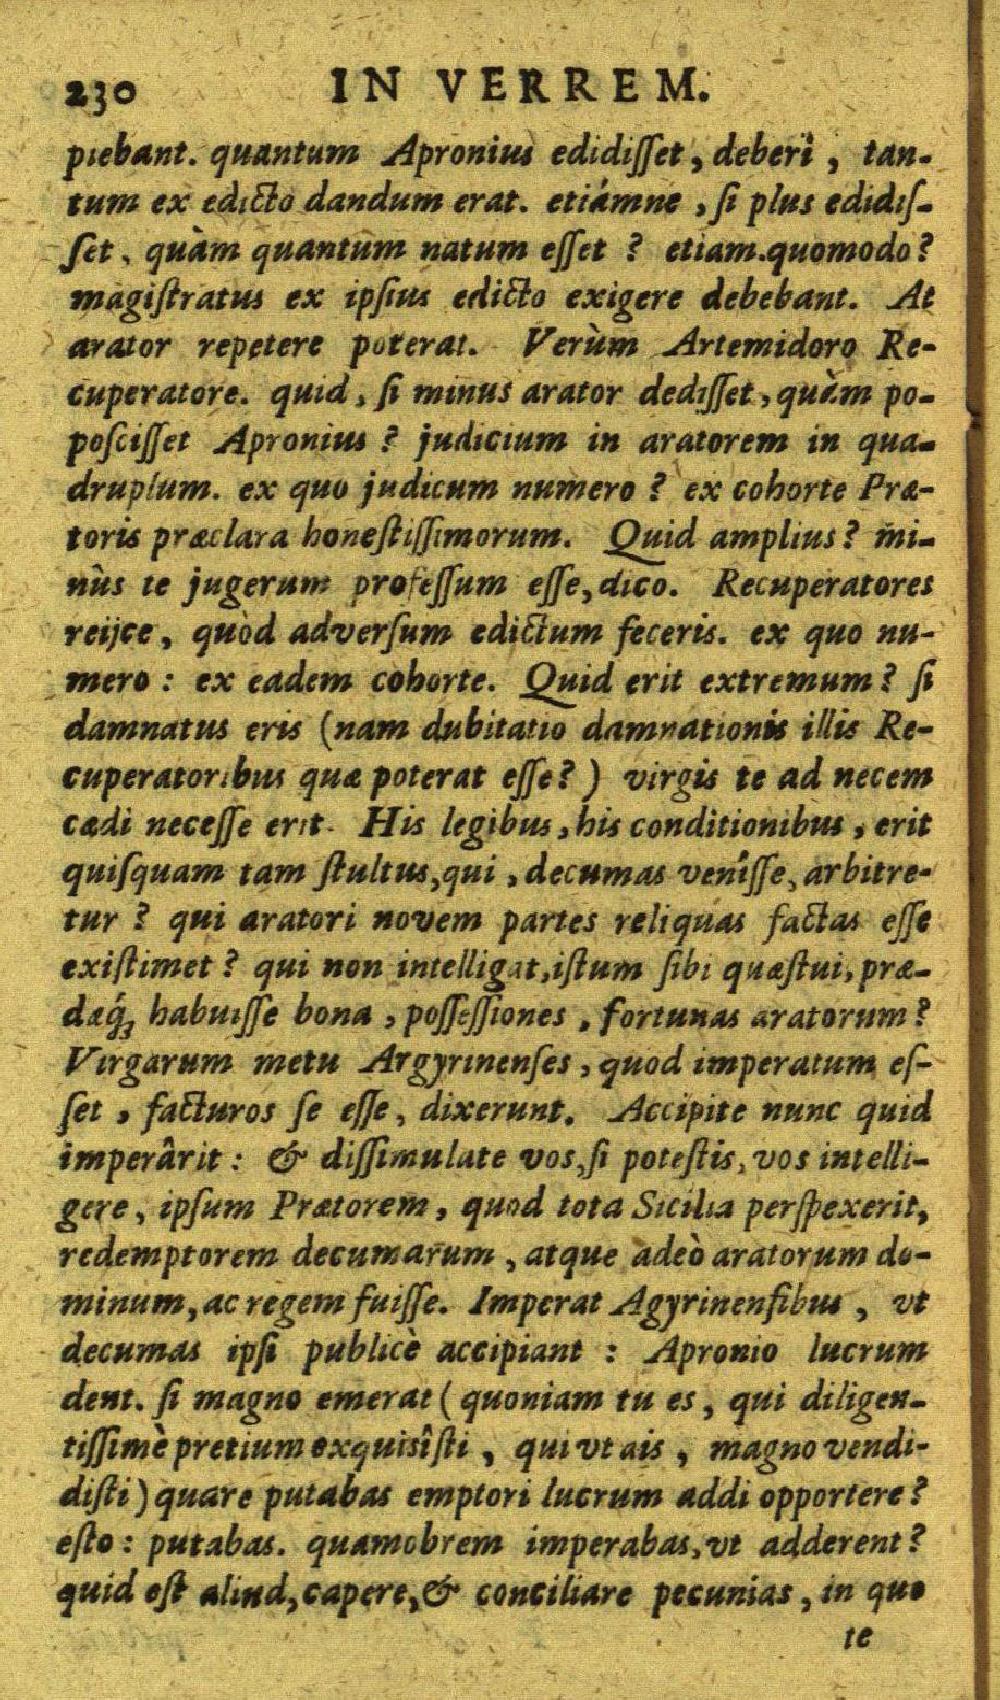 230 IN VERREM.
piebant. quantum Apronius edidiſſet, deberi, tan-
tum ex edicto dandum erat. etiámne, ſi plus edidiſ-
ſet, quàm quantum natum eſſet? etiam. quomodo?
magiſtratus ex ipſius edicto exigere debebant. At
arator repetere poterat. Verùm Artemidoro Re-
cuperatore. quid, ſi minus arator dediſſet, quàm po-
poſciſſet Apronius? judicium in aratorem in qua-
druplum. ex quo judicum numero? ex cohorte Præ-
toris præclara honeſtiſſimorum. Quid amplius? mi-
nùs te jugerum profeſſum eſſe, dico. Recuperatores
reijce, quòd adverſum edictum feceris. ex quo nu-
mero: ex eadem cohorte. Quid erit extremum? ſi
damnatus eris (nam dubitatio damnationis illis Re-
cuperatoribus quæ poterat eſſe?) virgis te ad necem
cædi neceſſe erit. His legibus, his conditionibus, erit
quiſquam tam ſtultus, qui, decumas veniſſe, arbitre-
tur? qui aratori novem partes reliquas factas eſſe
exiſtimet? qui non intelligat, iſtum ſibi quæſtui, præ-
dæq́; habuiſſe bona, poſſeſſiones, fortunas aratorum?
Virgarum metu Argyrinenſes, quod imperatum eſ-
ſet, facturos ſe eſſe, dixerunt. Accipite nunc quid
imperârit: & diſſimulate vos, ſi poteſtis, vos intelli-
gere, ipſum Prætorem, quod tota Sicilia perſpexerit,
redemptorem decumarum, atque adeò aratorum do-
minum, ac regem fuiſſe. Imperat Agyrinenſibus, vt
decumas ipſi publicè accipiant: Apronio lucrum
dent. ſi magno emerat (quoniam tu es, qui diligen-
tiſſimè pretium exquisîſti, qui vt ais, magno vendi-
diſti) quare putabas emptori lucrum addi opportere?
eſto: putabas. quamobrem imperabas, vt adderent?
quid eſt alind, capere, & conciliare pecunias, in quo
te